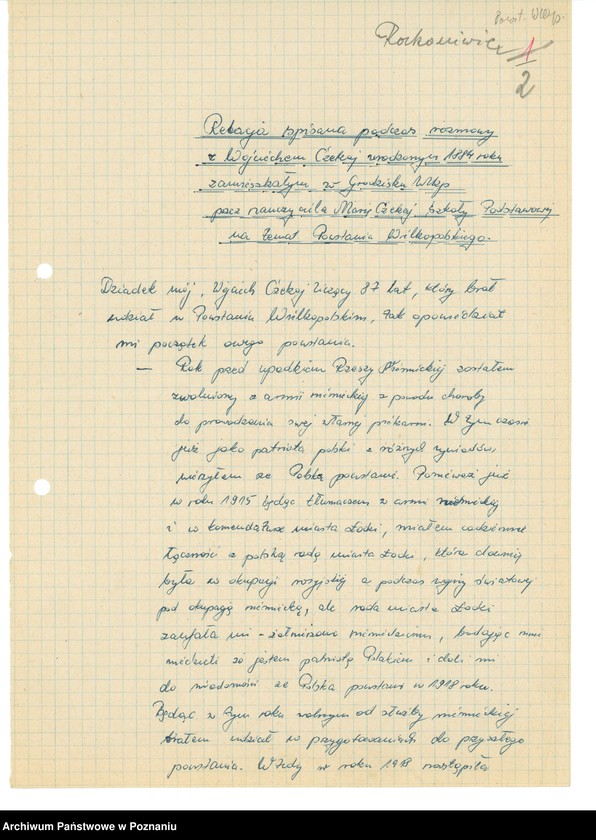 Powst. Wlkp.
Rackoniwice 1
2
Relacja spisana podczas rozmowy
z Wojciechem Czekaj urodzonym 1884 roku
zamieszkałym w Grodzisku Wlkp
pocz nauczyciela Marię Czekaj Szkoły Podstawowej
na temat Powstania Wielkopolskiego.
Dziadek mój, Wojciech Czekaj liczący 87 lat, który brał
udział w Powstaniu Wielkopolskim, tak opowiedział
mi początek owego powstania.
— Rok przed upadkiem Rzeszy Niemieckiej zostałem
zwolniony z armii niemieckiej z powodu choroby
do prowadzenia swej własnej piekarni. W tym czasie
już jako patriota polski z różnych wywiadów,
wierzyłem że Polska powstanie. Ponieważ już
w roku 1915 będąc tłumaczem z armii niemieckiej
i w komendaturze miasta Łodzi, miałem codziennie
łączność z polską radą miasta Łodzi, która dawniej
była w okupacji rosyjskiej a podczas wojny światowej
pod okupacją niemiecką, ale rada miasta Łodzi
zaufała mi - żołnierzowi niemieckiemu, badając mnie
wiedzieli że jestem patriotą Polakiem i dali mi
do wiadomości że Polska powstanie w 1918 roku.
Będąc w tym roku wolnym od służby niemieckiej
brałem udział w przygotowaniach do przyszłego
powstania. Wtedy w roku 1918 nastąpiła
Archiwum Państwowe w Poznaniu